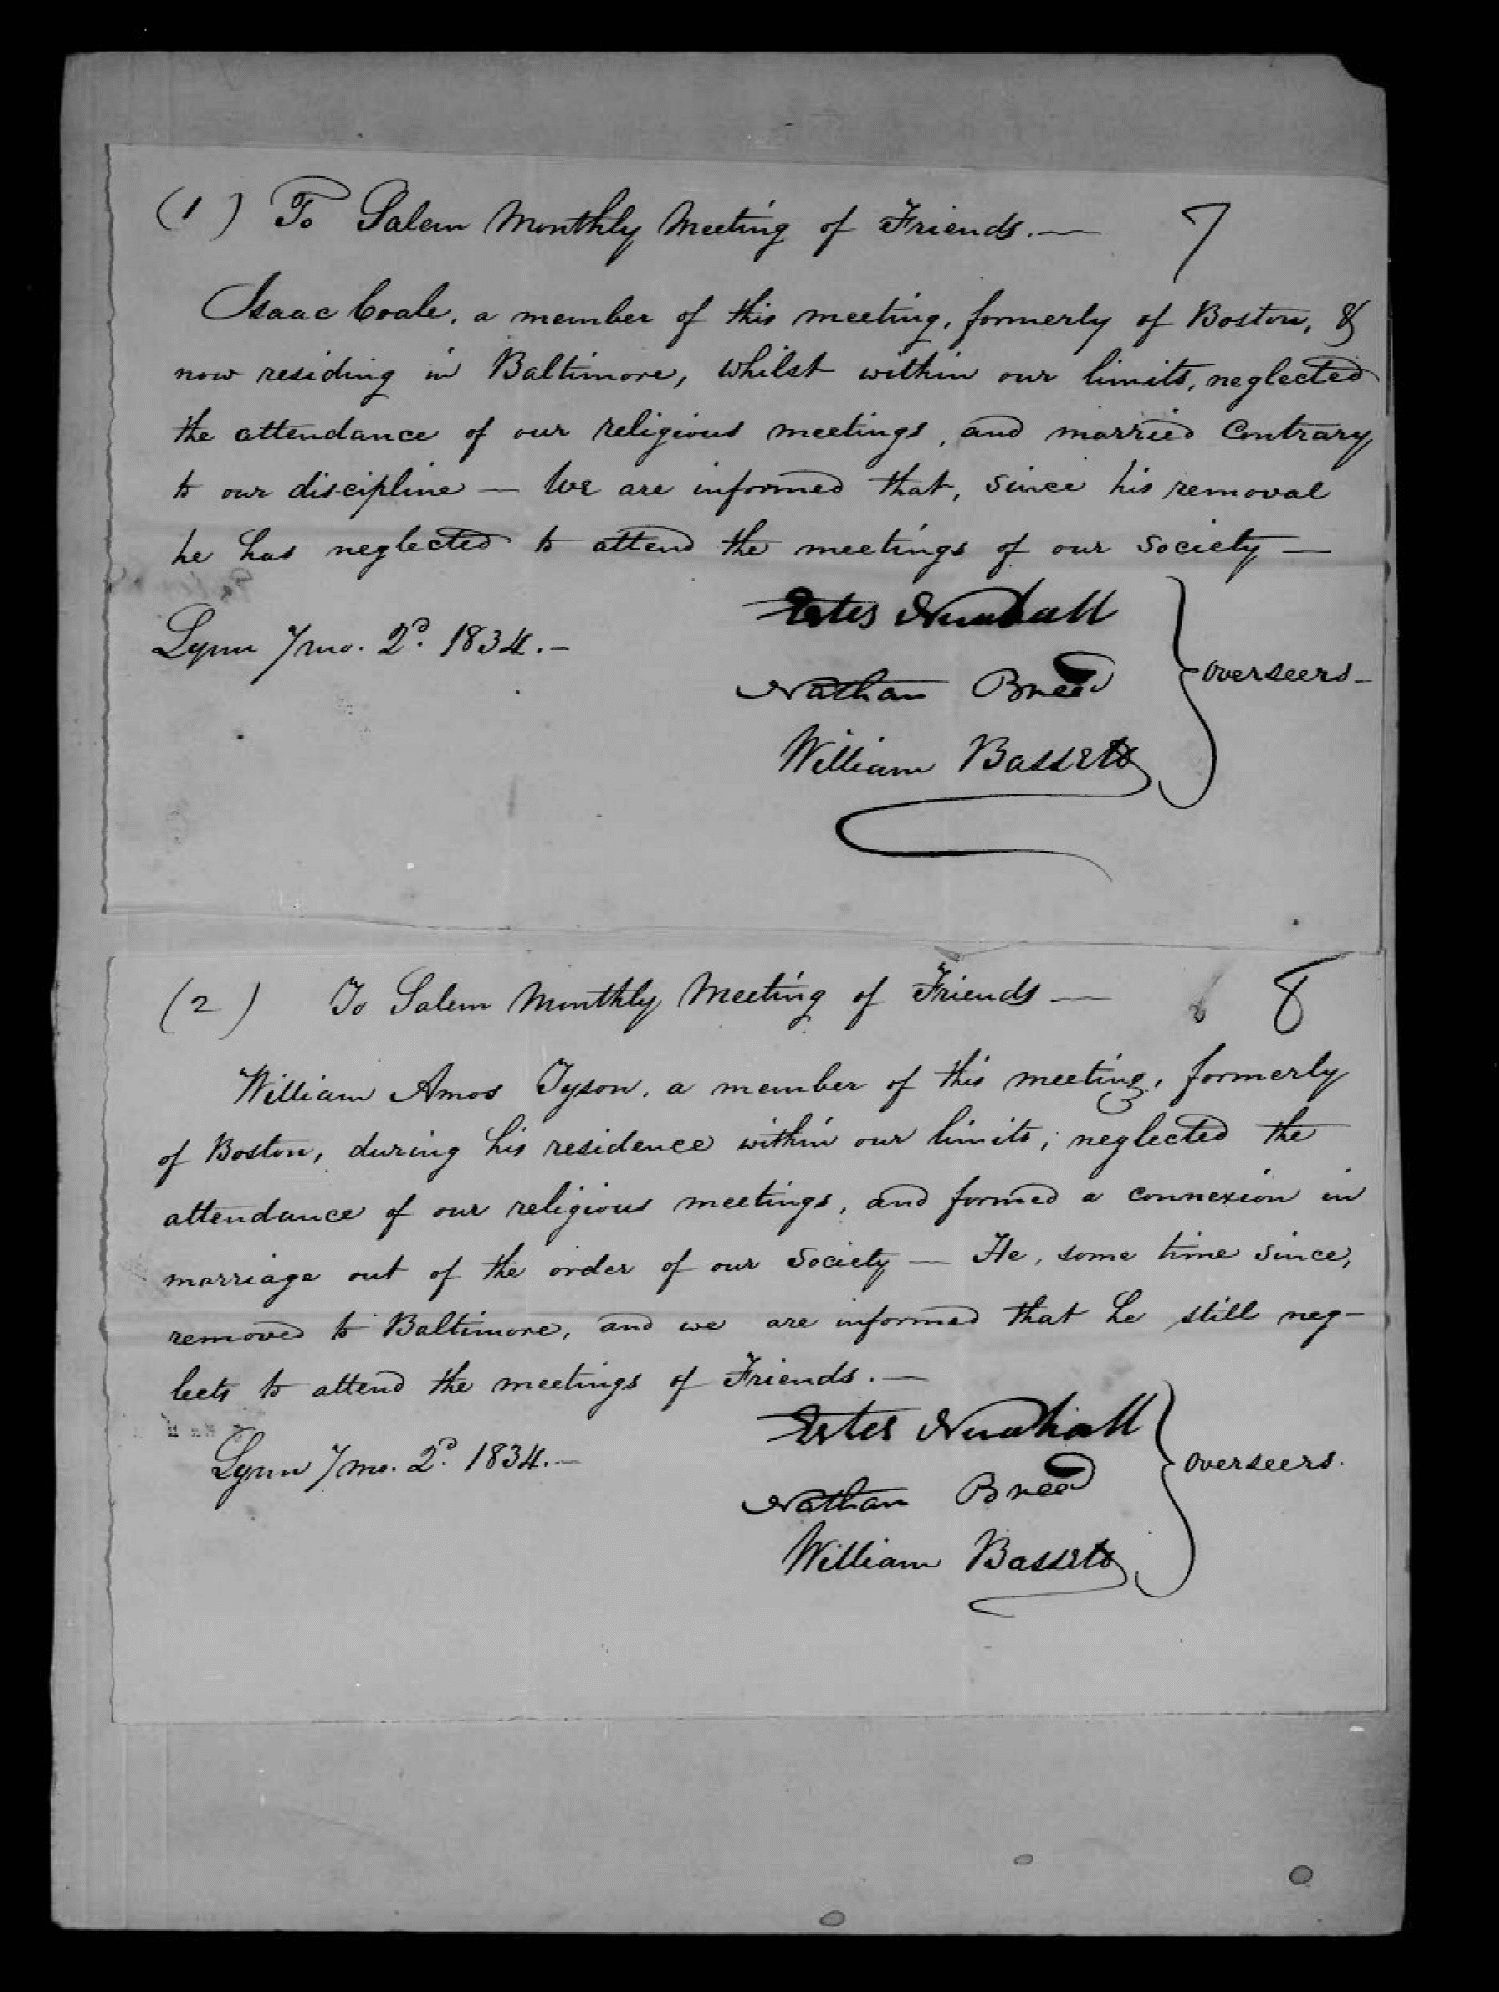 (1) To Salem Monthly Meeting of Friends. — 7
Isaac Coale, a member of this meeting, formerly of Boston, &
now residing in Baltimore, whilst within our limits, neglected
the attendance of our religious meetings, and married contrary
to our discipline — We are informed that, since his removal
he has neglected to attend the meetings of our Society —
Estes Newhall
Lynn 7 mo. 2d. 1834. —
Nathan Breed
Overseers —
William Bassett
(2) To Salem Monthly Meeting of Friends — 8
William Amos Tyson, a member of this meeting, formerly
of Boston, during his residence within our limits, neglected the
attendance of our religious meetings, and formed a connexion in
marriage out of the order of our Society — He, some time since,
removed to Baltimore, and we are informed that he still neg-
lects to attend the meetings of Friends. —
Estes Newhall
Lynn 7 mo. 2d. 1834. —
Overseers.
Nathan Breed
William Bassett